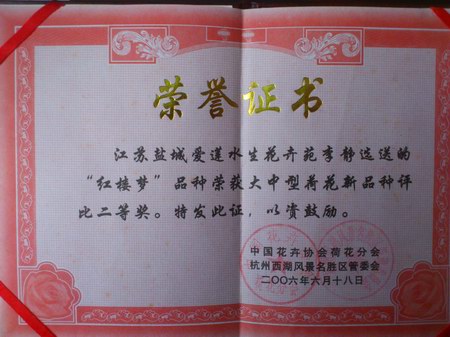 荣誉证书
江苏盐城爱莲水生花卉苑李静选送的
“红楼梦”品种荣获大中型荷花新品种评
比二等奖。特发此证，以资鼓励。
中国花卉协会荷花分会
杭州西湖风景名胜区管委会
二〇〇六年六月十八日